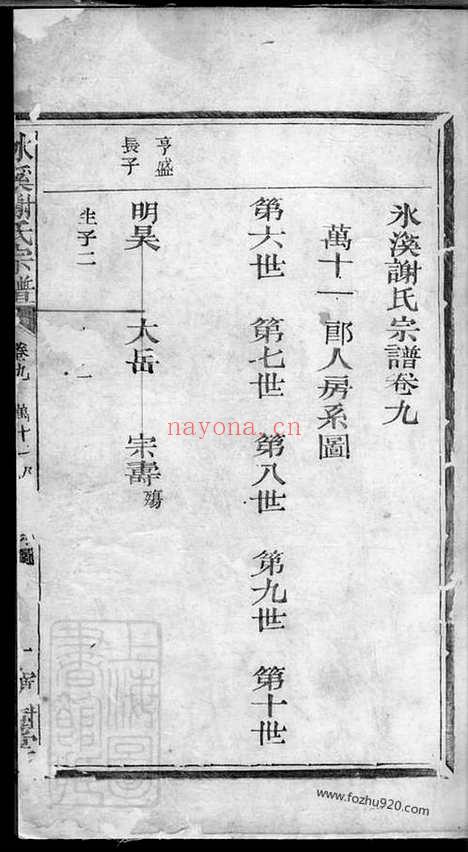 氷溪謝氏宗譜卷九
萬十一郎人房系圖
第六世 第七世 第八世 第九世 第十世
亨盛
長子
明昊 大岳 宗壽殤
生子二 一
氷溪謝氏宗譜 卷九 萬十一
nayona.cn
上海圖書館藏
www.fozhu920.com